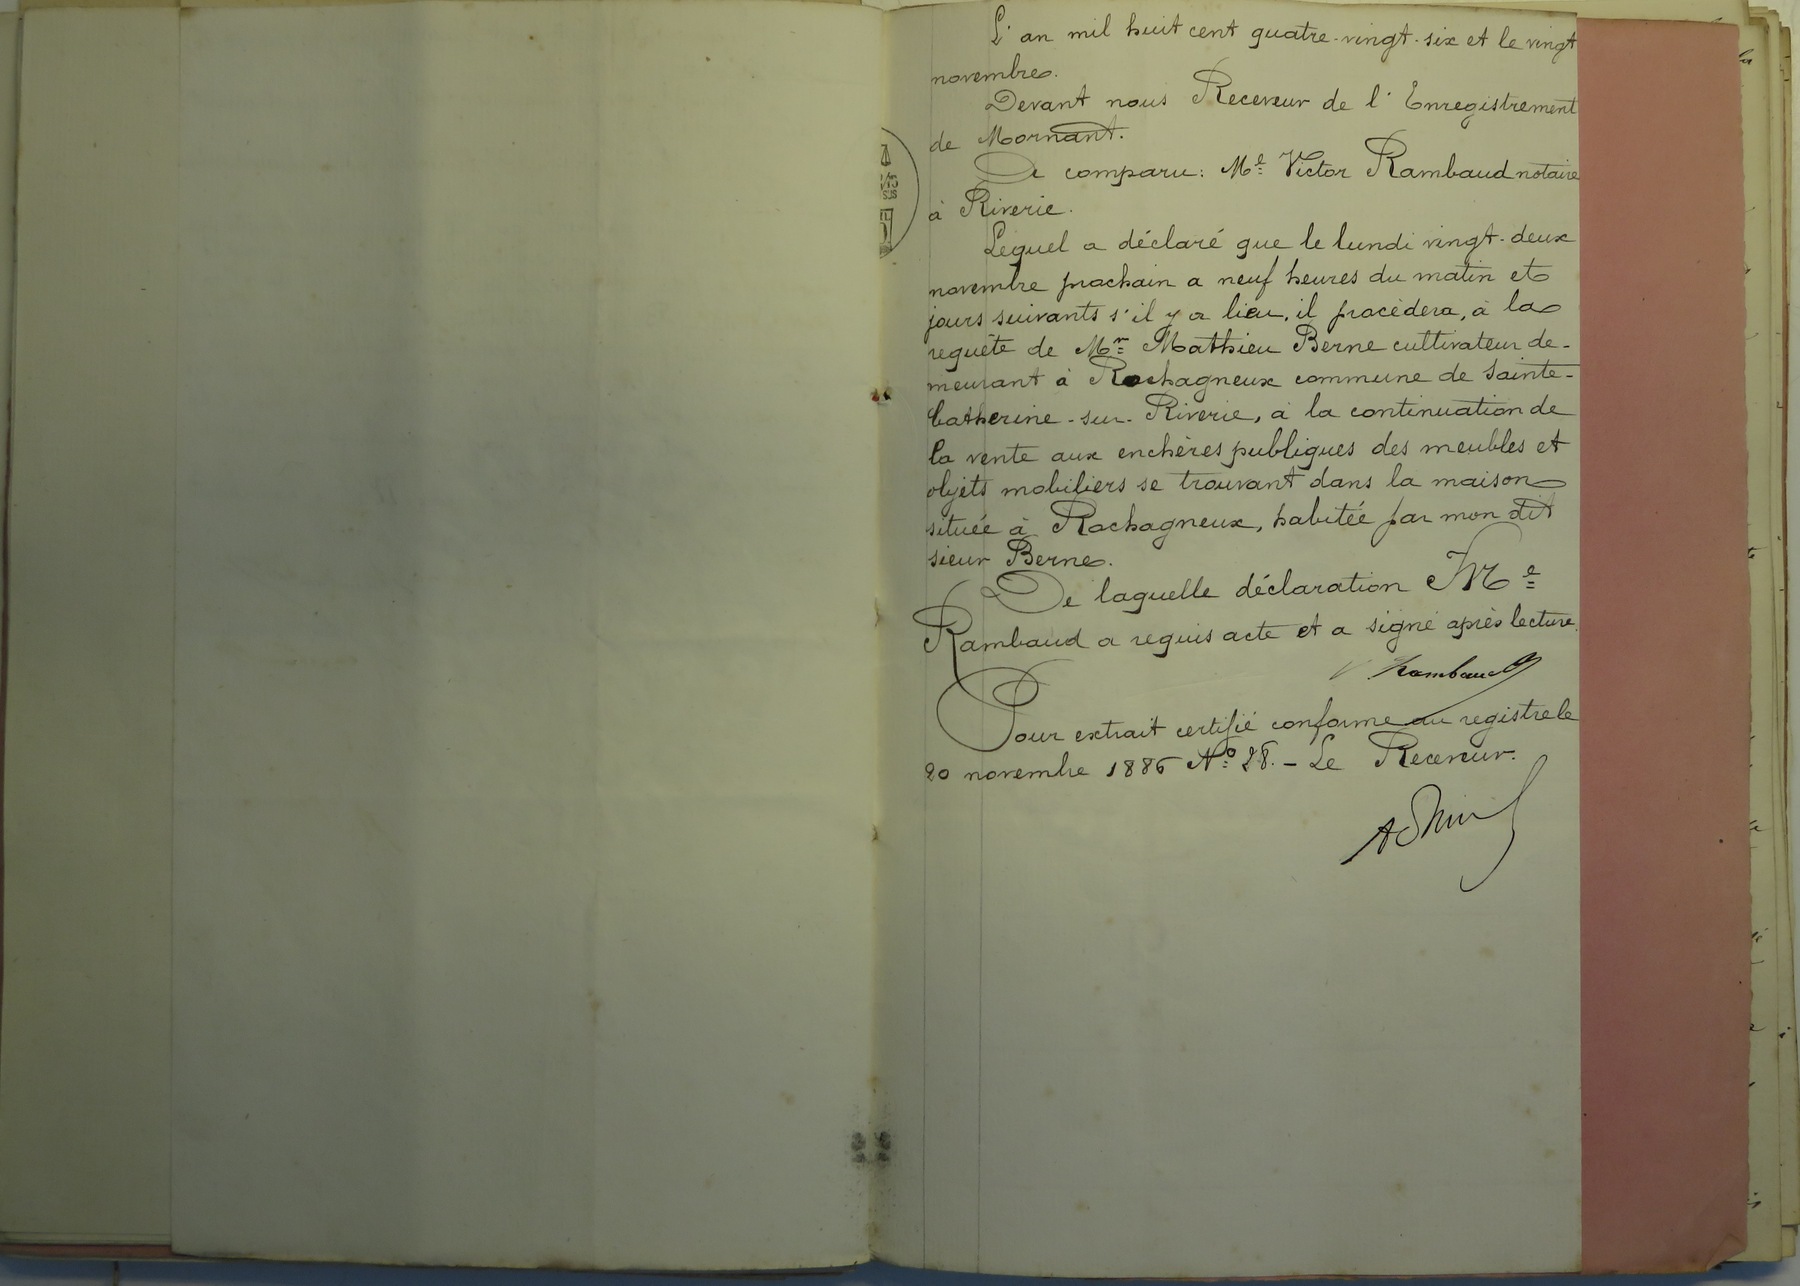 L'an mil huit cent quatre-vingt-six et le vingt
novembre.
Devant nous Receveur de l'Enregistrement
de Mornant.
A comparu: Me Victor Rambaud notaire
à Riverie.
Lequel a déclaré que le lundi vingt-deux
novembre prochain a neuf heures du matin et
jours suivants s'il y a lieu, il procèdera, à la
requête de Mr Mathieu Berne cultivateur de-
meurant à Rochagneux commune de Sainte-
Catherine-sur-Riverie, à la continuation de
la vente aux enchères publiques des meubles et
objets mobiliers se trouvant dans la maison
située à Rochagneux, habitée par mon dit
sieur Berne.
De laquelle déclaration Me
Rambaud a requis acte et a signé après lecture.
V. Rambaud
Pour extrait certifié conforme au registre le
20 novembre 1886 No 28. - Le Receveur.